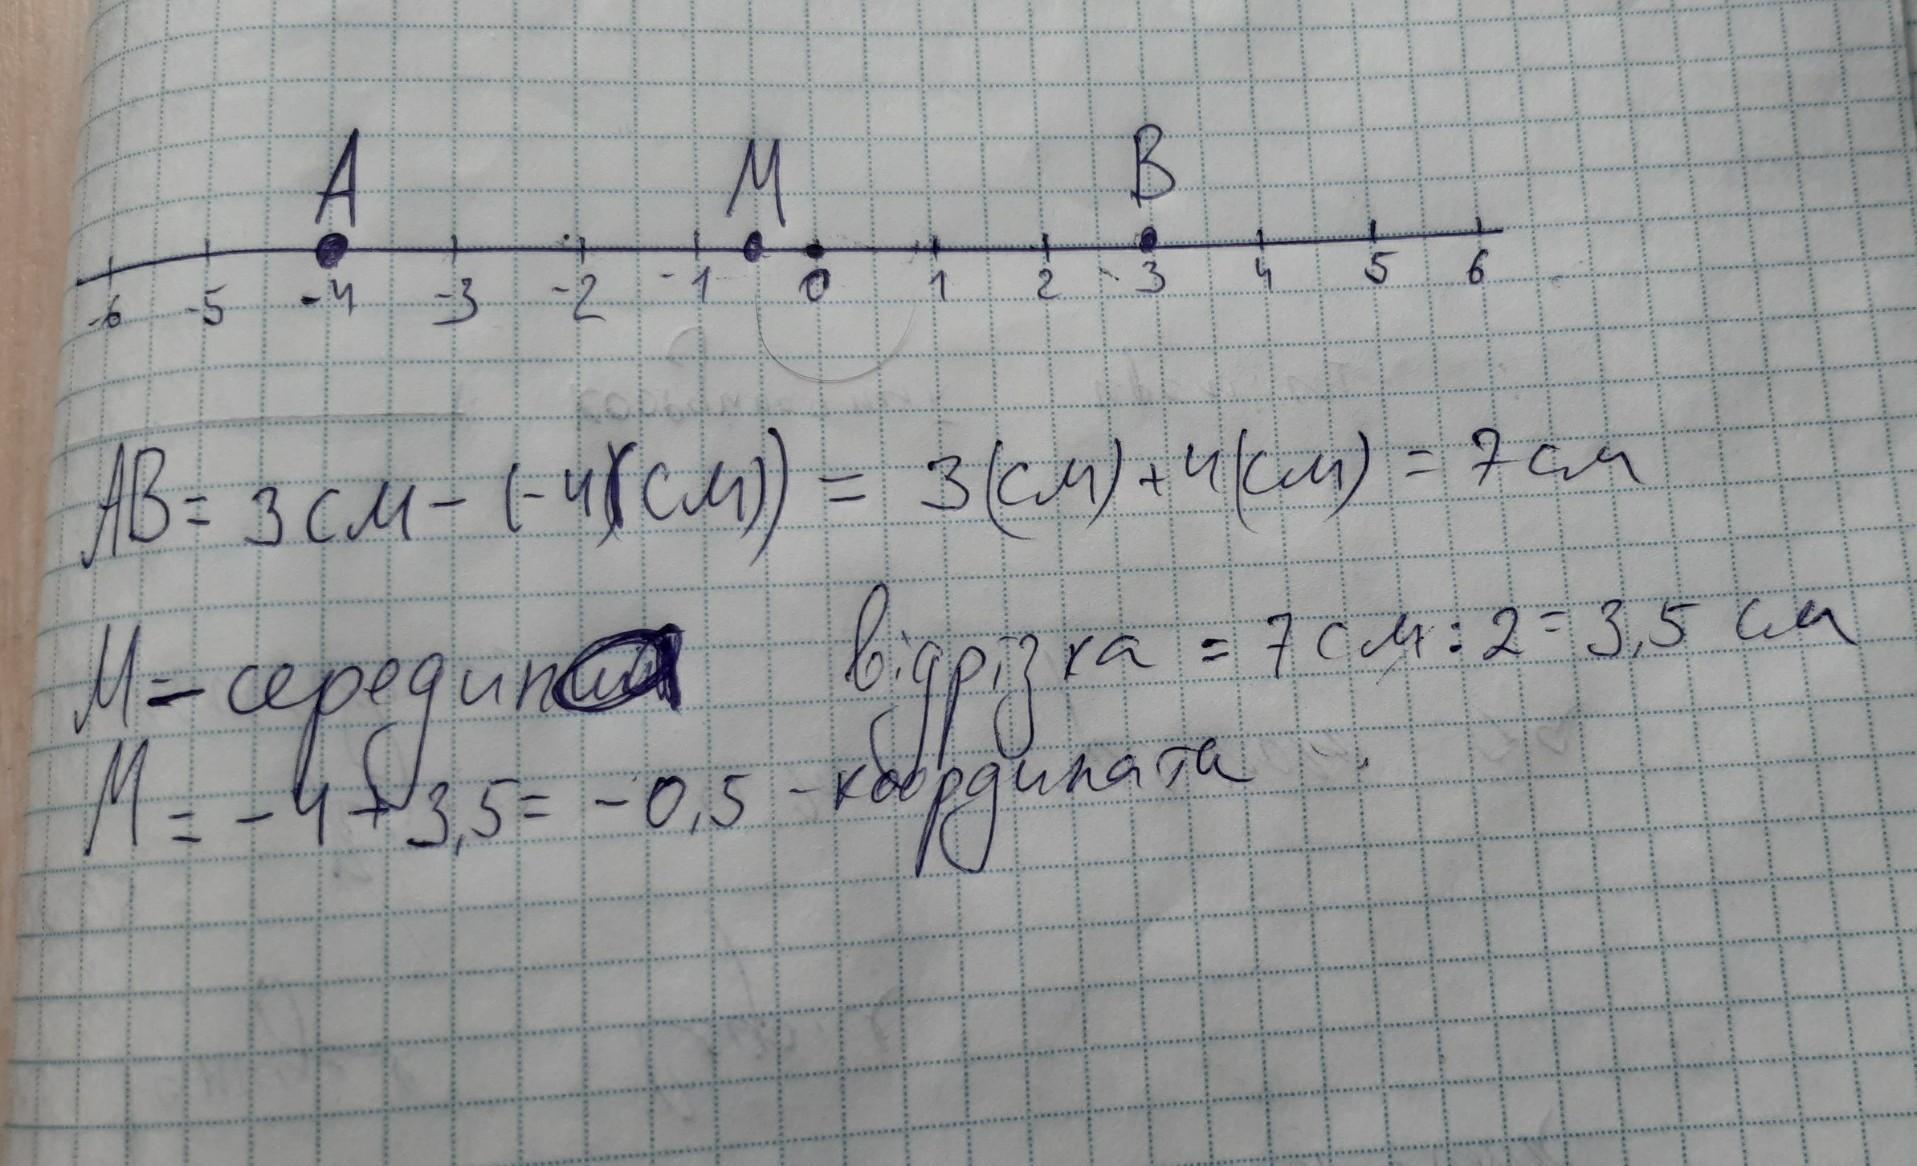 A M B
-6 -5 -4 -3 -2 -1 0 1 2 3 4 5 6
AB = 3 см - (-4(см)) = 3(см)+4(см) = 7 см
M - середина відрізка = 7 см : 2 = 3,5 см
M = -4 + 3,5 = -0,5 - координата